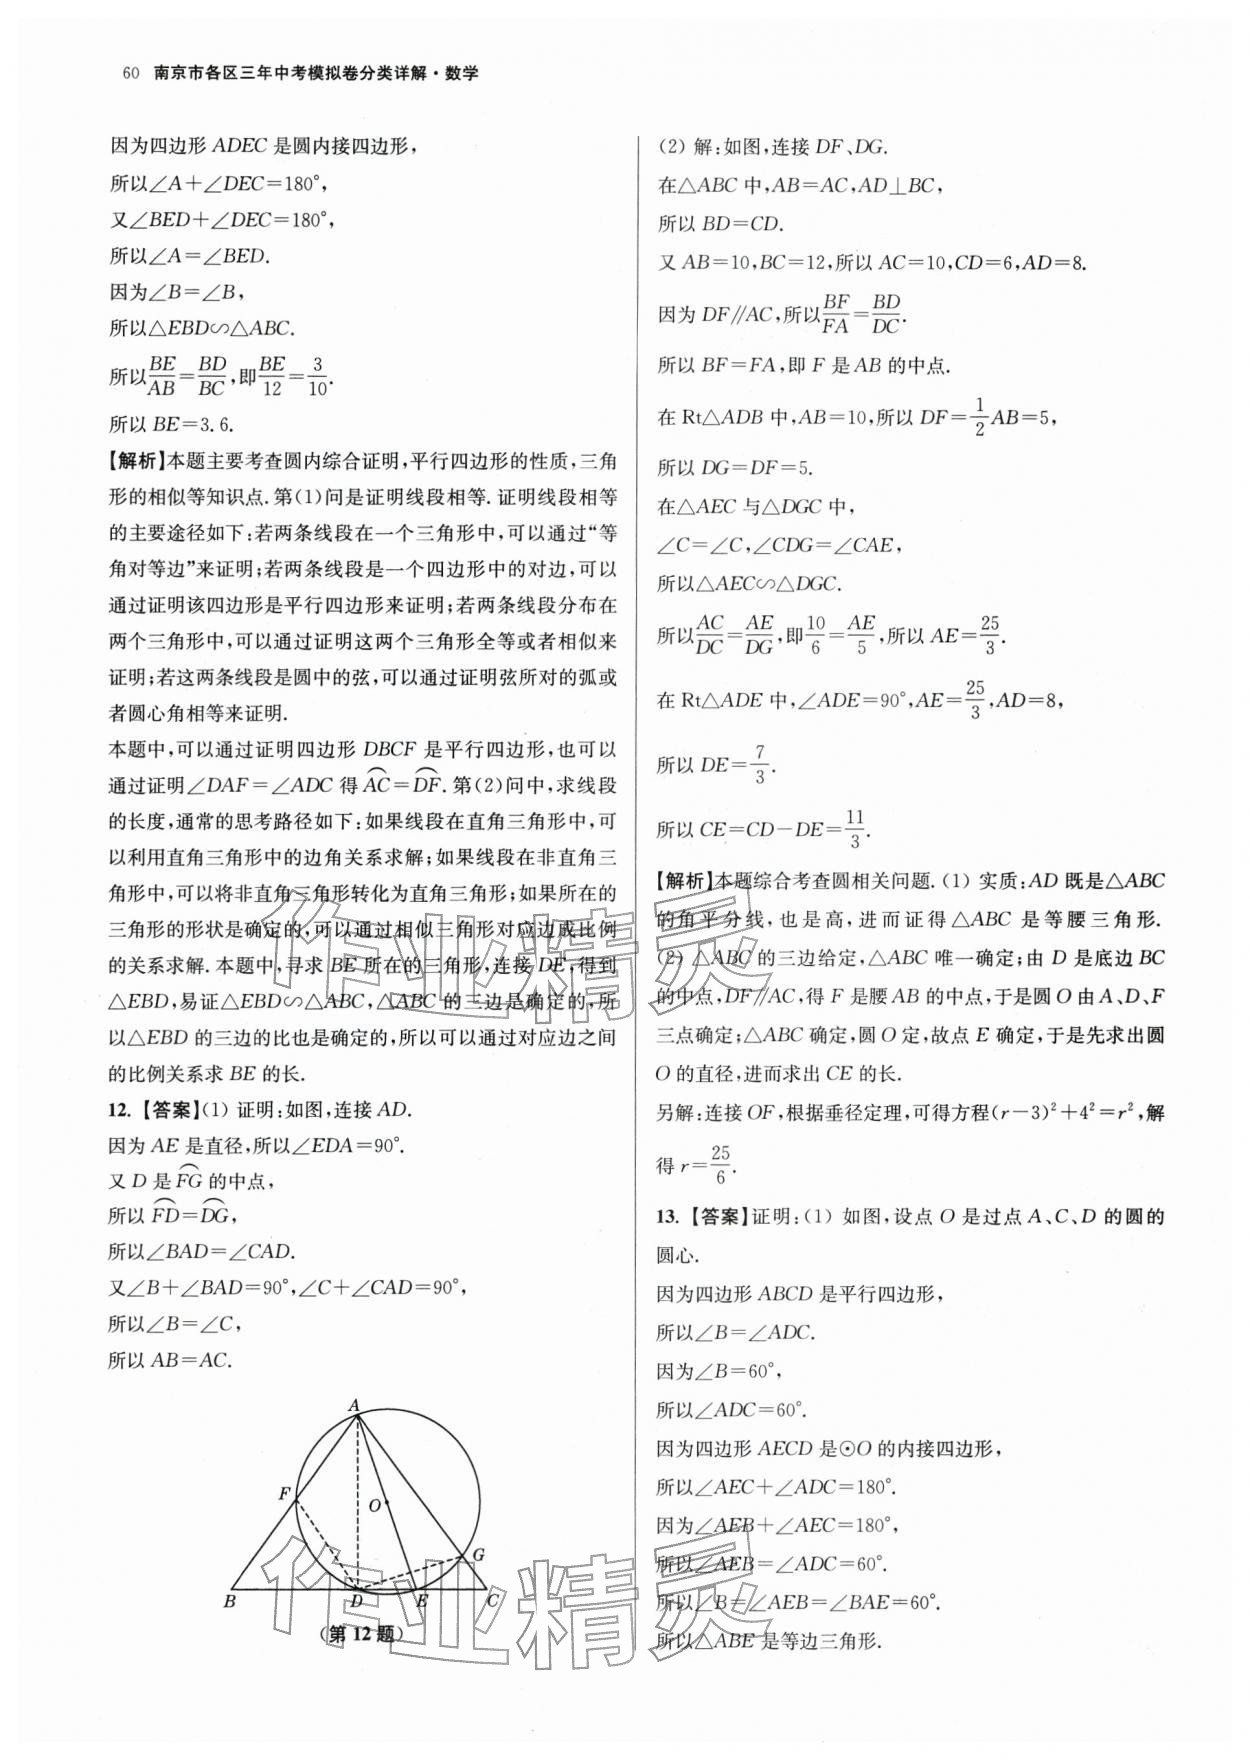 60 南京市各区三年中考模拟卷分类详解·数学
因为四边形 ADEC 是圆内接四边形,
所以∠A+∠DEC=180°,
又∠BED+∠DEC=180°,
所以∠A=∠BED.
因为∠B=∠B,
所以△EBD∽△ABC.
所以BE/AB=BD/BC,即BE/12=3/10.
所以 BE=3.6.
【解析】本题主要考查圆内综合证明,平行四边形的性质,三角
形的相似等知识点.第(1)问是证明线段相等.证明线段相等
的主要途径如下:若两条线段在一个三角形中,可以通过“等
角对等边”来证明;若两条线段是一个四边形中的对边,可以
通过证明该四边形是平行四边形来证明;若两条线段分布在
两个三角形中,可以通过证明这两个三角形全等或者相似来
证明;若这两条线段是圆中的弦,可以通过证明弦所对的弧或
者圆心角相等来证明.
本题中,可以通过证明四边形 DBCF 是平行四边形,也可以
通过证明∠DAF=∠ADC 得 ⌒AC=⌒DF.第(2)问中,求线段
的长度,通常的思考路径如下:如果线段在直角三角形中,可
以利用直角三角形中的边角关系求解;如果线段在非直角三
角形中,可以将非直角三角形转化为直角三角形;如果所在的
三角形的形状是确定的,可以通过相似三角形对应边成比例
的关系求解.本题中,寻求 BE 所在的三角形,连接 DE,得到
△EBD,易证△EBD∽△ABC,△ABC 的三边是确定的,所
以△EBD 的三边的比也是确定的,所以可以通过对应边之间
的比例关系求 BE 的长.
12.【答案】(1) 证明:如图,连接 AD.
因为 AE 是直径,所以∠EDA=90°.
又 D 是 ⌒FG 的中点,
所以 ⌒FD=⌒DG,
所以∠BAD=∠CAD.
又∠B+∠BAD=90°,∠C+∠CAD=90°,
所以∠B=∠C,
所以 AB=AC.
A
F
O
G
B
D
E
C
(第 12 题)
(2) 解:如图,连接 DF、DG.
在△ABC 中,AB=AC,AD⊥BC,
所以 BD=CD.
又 AB=10,BC=12,所以 AC=10,CD=6,AD=8.
因为 DF∥AC,所以BF/FA=BD/DC.
所以 BF=FA,即 F 是 AB 的中点.
在 Rt△ADB 中,AB=10,所以 DF=1/2AB=5,
所以 DG=DF=5.
在△AEC 与△DGC 中,
∠C=∠C,∠CDG=∠CAE,
所以△AEC∽△DGC.
所以AC/DC=AE/DG,即10/6=AE/5,所以 AE=25/3.
在 Rt△ADE 中,∠ADE=90°,AE=25/3,AD=8,
所以 DE=7/3.
所以 CE=CD-DE=11/3.
【解析】本题综合考查圆相关问题.(1) 实质:AD 既是△ABC
的角平分线,也是高,进而证得△ABC 是等腰三角形.
(2) △ABC 的三边给定,△ABC 唯一确定;由 D 是底边 BC
的中点,DF∥AC,得 F 是腰 AB 的中点,于是圆 O 由 A、D、F
三点确定;△ABC 确定,圆 O 定,故点 E 确定,于是先求出圆
O 的直径,进而求出 CE 的长.
另解:连接 OF,根据垂径定理,可得方程(r-3)²+4²=r²,解
得 r=25/6.
13.【答案】证明:(1) 如图,设点 O 是过点 A、C、D 的圆的
圆心.
因为四边形 ABCD 是平行四边形,
所以∠B=∠ADC.
因为∠B=60°,
所以∠ADC=60°.
因为四边形 AECD 是⊙O 的内接四边形,
所以∠AEC+∠ADC=180°.
因为∠AEB+∠AEC=180°,
所以∠AEB=∠ADC=60°.
所以∠B=∠AEB=∠BAE=60°.
所以△ABE 是等边三角形.
作业精灵
作业精灵